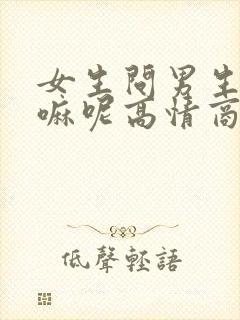 女生問男生
嘛呢高情商
低聲輕語